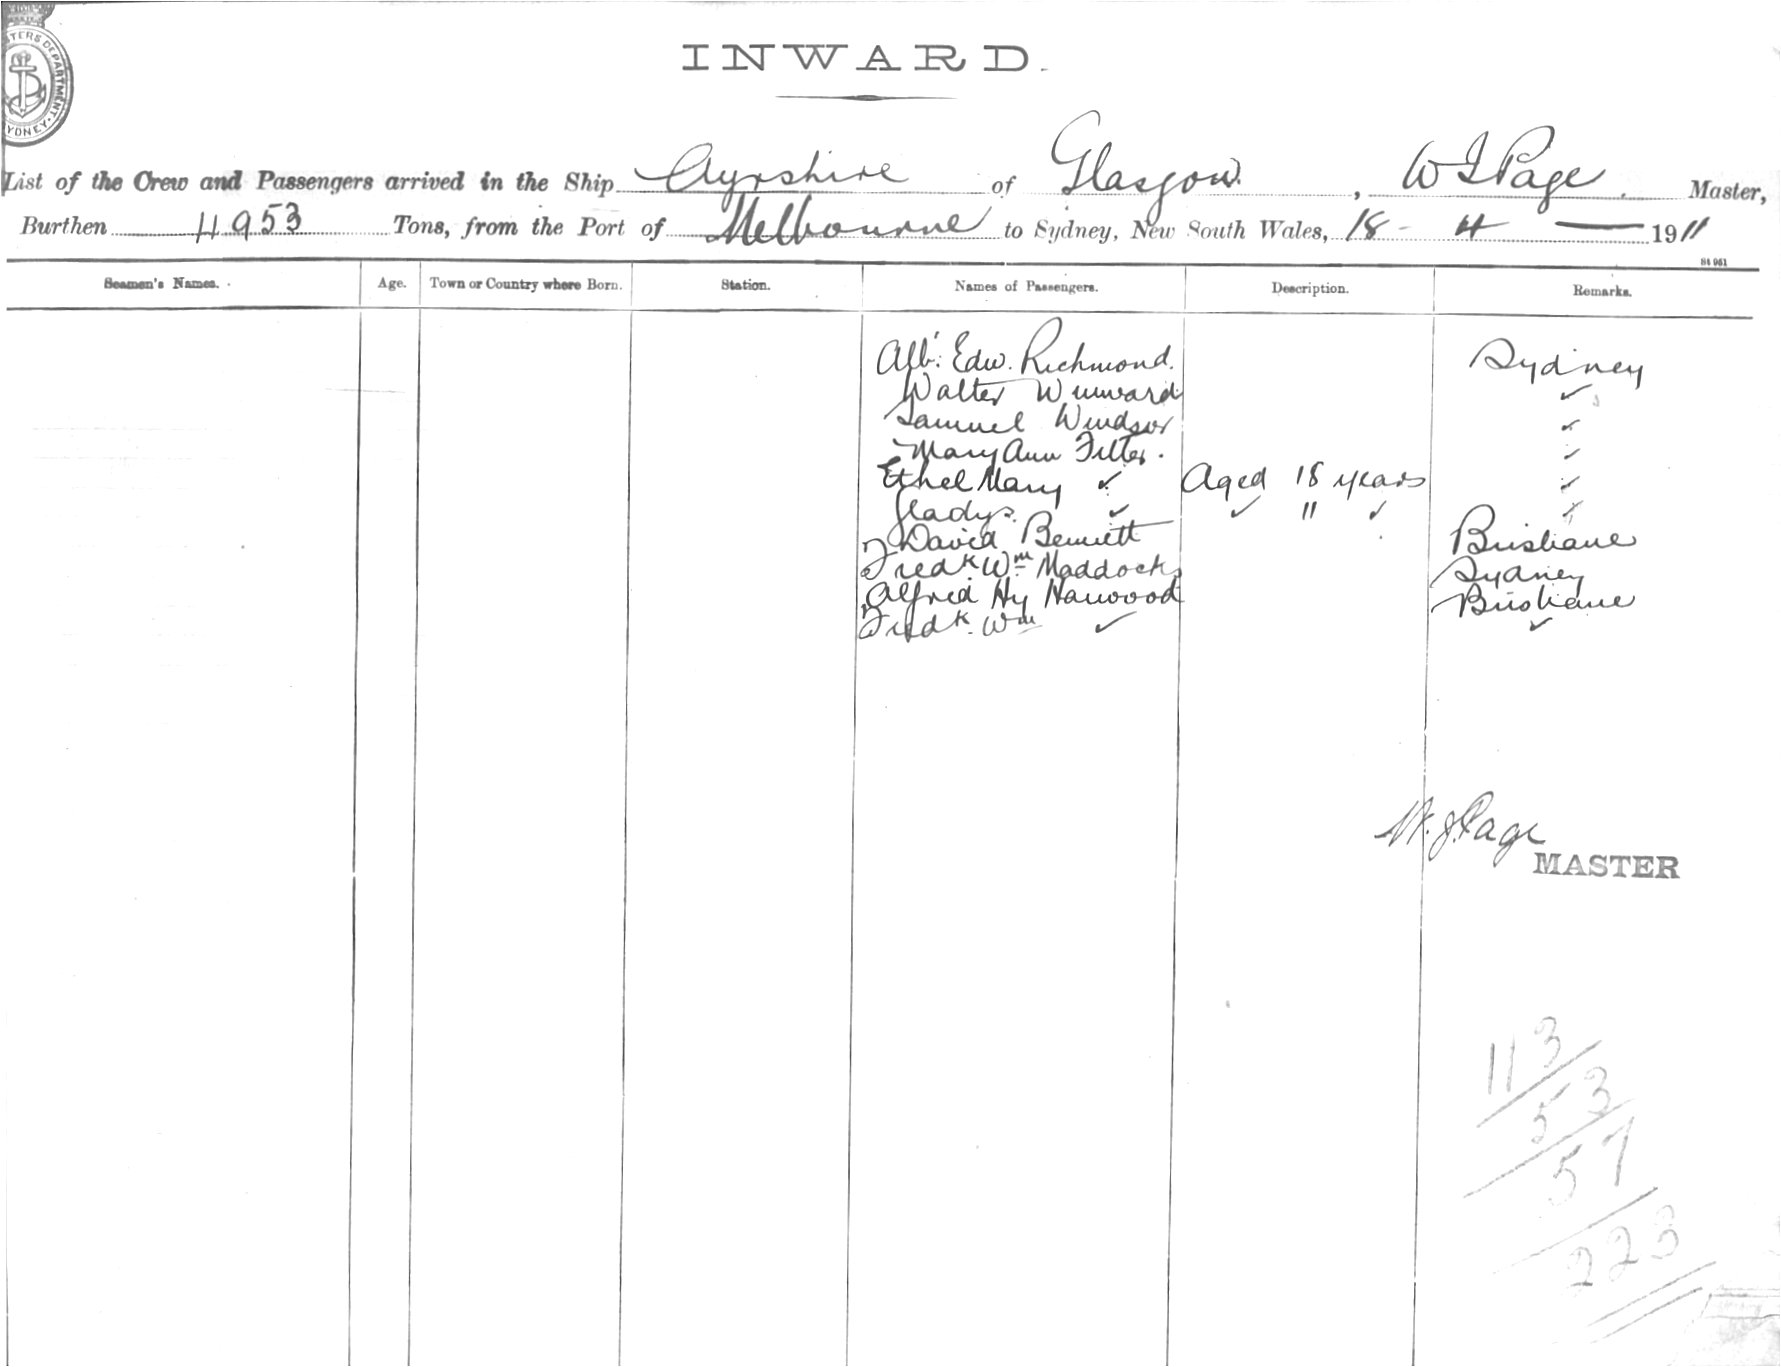 TERS DEPARTMENT. YDNEY.
INWARD.
List of the Crew and Passengers arrived in the Ship Ayrshire of Glasgow, W J Page Master,
Burthen 4953 Tons, from the Port of Melbourne to Sydney, New South Wales, 18 - 4 — 1911
St 961
Seamen's Names. Age. Town or Country where Born. Station. Names of Passengers. Description. Remarks.
Alb. Edw. Richmond. Sydney
Walter Winward ✓
Samuel Windsor ✓
Mary Ann ✓
Ethel Mary ✓ Aged 18 years ✓
Gladys. ✓ ✓ " ✓ ✓
David Bennett Brisbane
Fredk. Wm Maddocks Sydney
Alfred Hy Harwood Brisbane
Fredk. Wm ✓ ✓
W. J. Page
MASTER
113
53
57
223